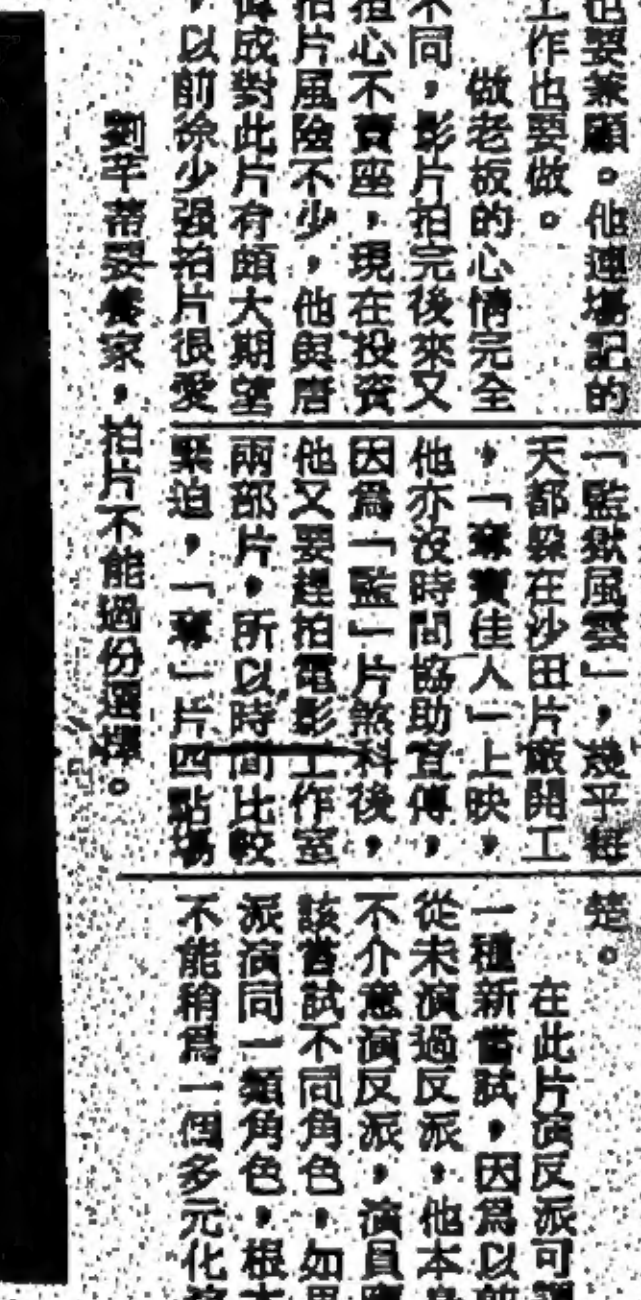 也要兼顧。他連場記的
工作也要做。
做老板的心情完全
不同，影片拍完後來又
担心不賣座，現在投資
拍片風險不少，他與唐
偉成對此片有頗大期望
，以前徐少强拍片很愛
劉芊蒂要養家，拍片不能過份選擇。
「監獄風雲」，幾乎每
天都躲在沙田片廠開工
，「奪寶佳人」上映，
他亦沒時間協助宣傳，
因爲「監」片煞科後，
他又要趕拍電影工作室
兩部片，所以時間比較
緊迫，「奪」片四點場
楚。
在此片演反派可謂
一種新嘗試，因爲以前
從未演過反派，他本身
不介意演反派，演員應
該嘗試不同角色，如果
派演同一類角色，根本
不能稍爲一個多元化